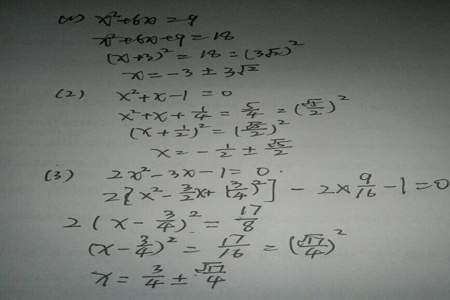 (1) x²+6x=9
x²+6x+9=18
(x+3)²=18=(3√2)²
x=-3±3√2
(2) x²+x-1=0
x²+x+1/4=5/4=(√5/2)²
(x+1/2)²=(√5/2)²
x=-1/2±√5/2
(3) 2x²-3x-1=0.
2[x²-3/2x+(3/4)²]-2×9/16-1=0
2(x-3/4)²=17/8
(x-3/4)²=17/16=(√17/4)²
x=3/4±√17/4